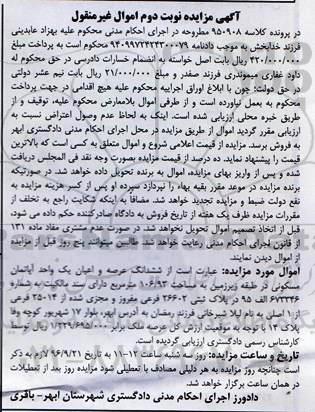 آگهی مزایده نوبت دوم اموال غیرمنقول
در پرونده کلاسه ۹۵۰۹۰۸ مطروحه در اجرای احکام مدنی محکوم علیه بهزاد عابدینی
فرزند خدابخش به موجب دادنامه ۹۴۰۹۹۷۲۴۲۴۳۰۰۰۷۹ محکوم است به پرداخت مبلغ
۴۲۰/۰۰۰/۰۰۰ ریال بابت اصل خواسته به انضمام خسارات دادرسی در حق محکوم له
داود غفاری میموندری فرزند صفدر و مبلغ ۲۱/۰۰۰/۰۰۰ ریال بابت نیم عشر دولتی
در حق دولت؛ چون با ابلاغ اوراق اجراییه محکوم علیه هیچ اقدامی در جهت پرداخت
محکوم به بعمل نیاورده است و از طرفی اموال بلامعارض محکوم علیه، توقیف و از
طریق خبره محلی ارزیابی شده است. اینک به لحاظ عدم وصول اعتراض نسبت به
ارزیابی مقرر گردید اموال از طریق مزایده در محل اجرای احکام مدنی دادگستری ابهر
به فروش برسد. مزایده از قیمت اعلامی شروع و اموال متعلق به کسی است که بالاترین
قیمت را پیشنهاد نماید. ده درصد از قیمت مزایده بصورت وجه نقد فی المجلس دریافت
شده و پس از واریز بهای مزایده، اموال به برنده تحویل داده خواهد شد. در صورتیکه
برنده مزایده در موعد مقرر بقیه بهاء را نپردازد سپرده او پس از کسر هزینه مزایده به
نفع دولت ضبط و مزایده تجدید خواهد شد. مضافا به اینکه شکایت راجع به تخلف از
مقررات مزایده ظرف یک هفته از تاریخ فروش به دادگاه صادرکننده حکم داده می شود،
قبل از اتخاذ تصمیم اموال تحویل نخواهد شد. در صورت عدم مشتری مفاد ماده ۱۳۱
از قانون اجرای احکام مدنی رعایت خواهد شد. طالبین میتوانند پنج روز قبل از مزایده
از اموال دیدن نمایند.
اموال مورد مزایده: عبارت است از ششدانگ عرصه و اعیان یک واحد آپاتمان
مسکونی در طبقه زیرزمین به مساحت ۱۰۶/۹۳ مترمربع دارای سند مالکیت به شماره
۶۷۳۳۴۶ الف ۹۵ در پلاک ثبتی ۲۶۶۰۲ فرعی مفروز و مجزی شده از ۲۵۰۱۴ فرعی
از ۱ اصلی به نام لیلا شیرخانی فرزند رمضان به آدرس ابهر، بلوار ۱۷ شهریور کوچه وفا
پلاک ۱۴ با توجه به موقعیت ارزش کل عرصه ملک برابر ۱/۲۲۹/۶۹۵/۰۰۰ ریال توسط
کارشناس رسمی دادگستری ارزیابی گردیده است.
تاریخ و ساعت مزایده: روز سه شنبه ساعت ۱۲-۱۱ به تاریخ ۹۶/۹/۲۱ لازم به ذکر
است چنانچه روز مزایده به هر دلیلی مصادف با تعطیلی شود مزایده روز بعد از تعطیلات
در همان ساعت برگزار خواهد شد.
دادورز اجرای احکام مدنی دادگستری شهرستان ابهر- باقری